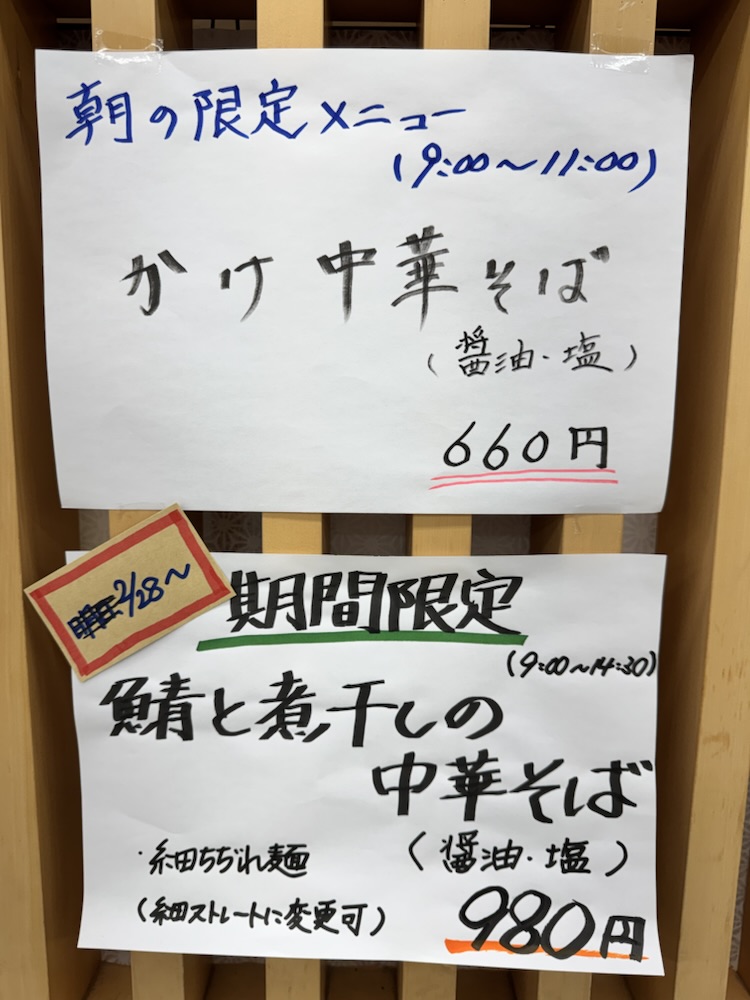 朝の限定メニュー
(9:00〜11:00)
かけ中華そば
(醤油・塩)
660円
2/28〜
期間限定
(9:00〜14:30)
鯖と煮干しの
中華そば
・細ちぢれ麺
(醤油・塩)
(細ストレートに変更可)
980円